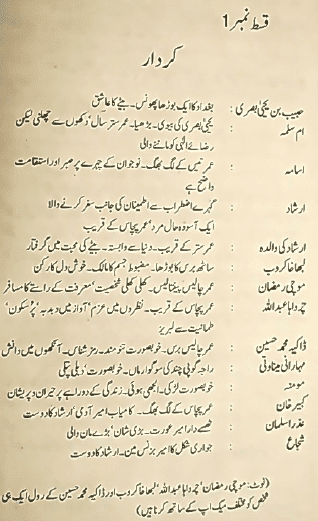 قسط نمبر 1
کردار
حبیب بن یحییٰ بصری : بغداد کا ایک بوڑھا پھونس۔ بیٹے کا عاشق
ام سلمہ : یحییٰ بصری کی بیوی۔ بڑھیا۔ عمر ستر سال‘ دکھوں سے چھلنی لیکن
رضائے الٰہی کو ماننے والی
اسامہ : عمر تیس کے لگ بھگ۔ نوجوان کے چہرے پر صبر اور استقامت
واضح ہے
ارشاد : گہرے اضطراب سے اطمینان کی جانب سفر کرنے والا
ایک آسودہ حال مرد‘ عمر پچاس کے قریب
ارشاد کی والدہ : عمر ستر کے قریب۔ دنیا سے وابستہ۔ بیٹے کی محبت میں گرفتار
لبھا خاکروب : ساٹھ برس کا بوڑھا۔ مضبوط جسم کا مالک۔ خوش دل کارکن
موچی رمضان : عمر چالیس پینتالیس۔ کھلی کھلی شخصیت‘ معرفت کے راستے کا مسافر
چرواہا عبداللہ : عمر پچاس کے قریب۔ نظروں میں عزم‘ آواز میں دبدبہ‘ پرسکون‘
طمانیت سے لبریز
ڈاکیہ محمد حسین : عمر چالیس برس۔ خوبصورت تنومند۔ رمز شناس۔ آنکھوں میں دانش
مہارانی میناوتی : راجہ گوپی چند کی سوگوار ماں۔ خوبصورت‘ دبلی پتلی
مومنہ : خوبصورت لڑکی۔ الجھی ہوئی۔ زندگی کے دوراہے پر حیران و پریشان
کبیر خان : عمر پچاس کے لگ بھگ۔ کامیاب امیر آدمی‘ ارشاد کا دوست
عذرا سلمان : حصے دار امیر عورت۔ بڑی شان‘ بڑے مان والی
شجاع : جواری شکل کا امیر بزنس مین۔ ارشاد کا دوست
(نوٹ: موچی رمضان‘ چرواہا عبداللہ‘ لبھا خاکروب اور ڈاکیہ محمد حسین کے رول ایک ہی
شخص کو مختلف میک اپ کے ساتھ کرنا ہیں)